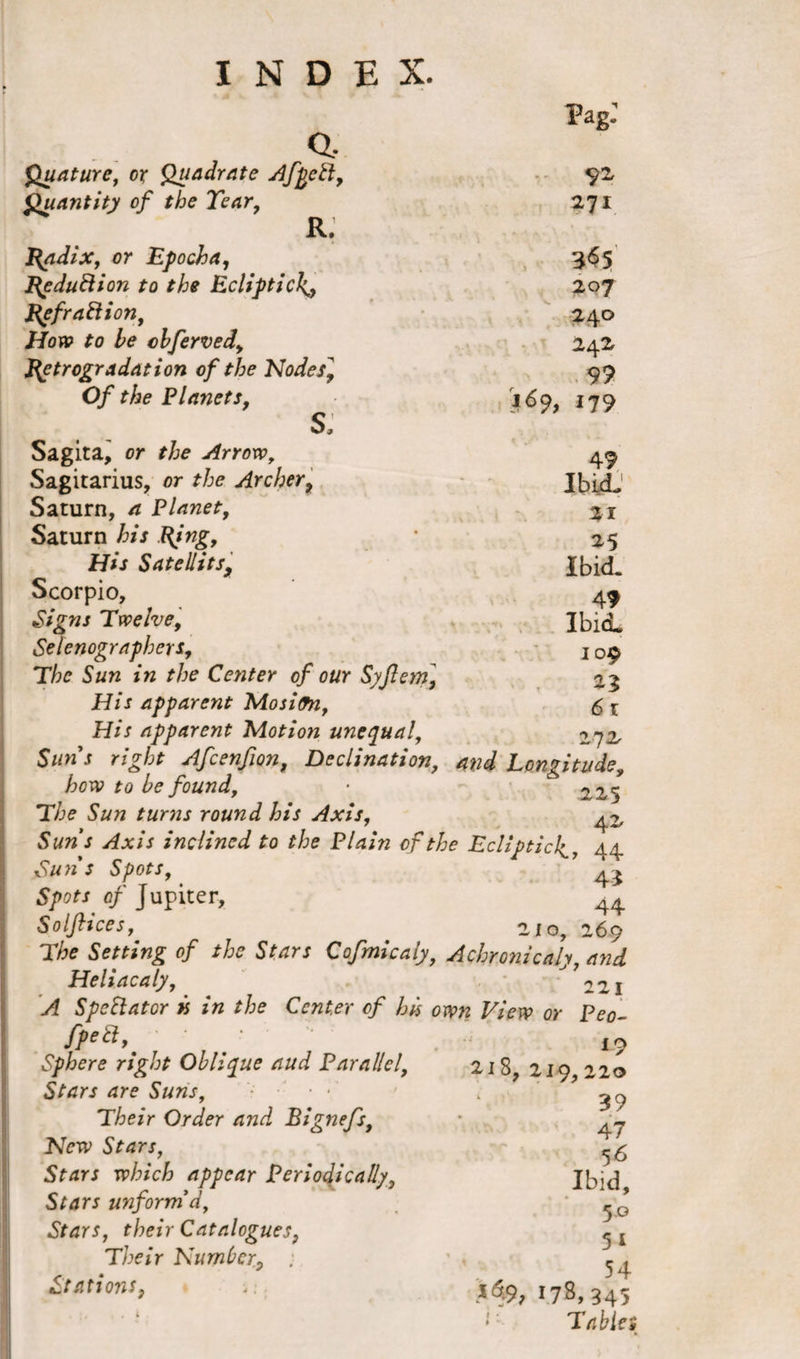 INDEX.
Pag.
Q.
Quature, or Quadrate Aſpect, 92
Quantity of the Year, 271
R.
Radix, or Epocha, 365
Reduction to the Ecliptick, 207
Refraction, 240
How to be obſerved, 242
Retrogradation of the Nodes, 99
Of the Planets, 169, 179
S.
Sagita, or the Arrow, 49
Sagitarius, or the Archer, Ibid.
Saturn, a Planet, 21
Saturn his Ring, 25
His Satellits, Ibid.
Scorpio, 49
Signs Twelve, Ibid.
Selenographers, 109
The Sun in the Center of our Syſtem, 23
His apparent Motion, 61
His apparent Motion unequal, 272
Sun's right Aſcenſion, Declination, and Longitude,
how to be found, 225
The Sun turns round his Axis, 42
Sun's Axis inclined to the Plain of the Ecliptick, 44
Sun's Spots, 43
Spots of Jupiter, 44
Solſtices, 210, 269
The Setting of the Stars Coſmicaly, Achronicaly, and
Heliacaly, 221
A Spectator is in the Center of his own View or Pro-
ſpect, 19
Sphere right Oblique aud Parallel, 218, 219, 220
Stars are Suns, 39
Their Order and Bigneſs, 47
New Stars, 56
Stars which appear Periodically, Ibid,
Stars unform'd, 50
Stars, their Catalogues, 51
Their Number, 54
Stations, 169, 178, 345
Tables